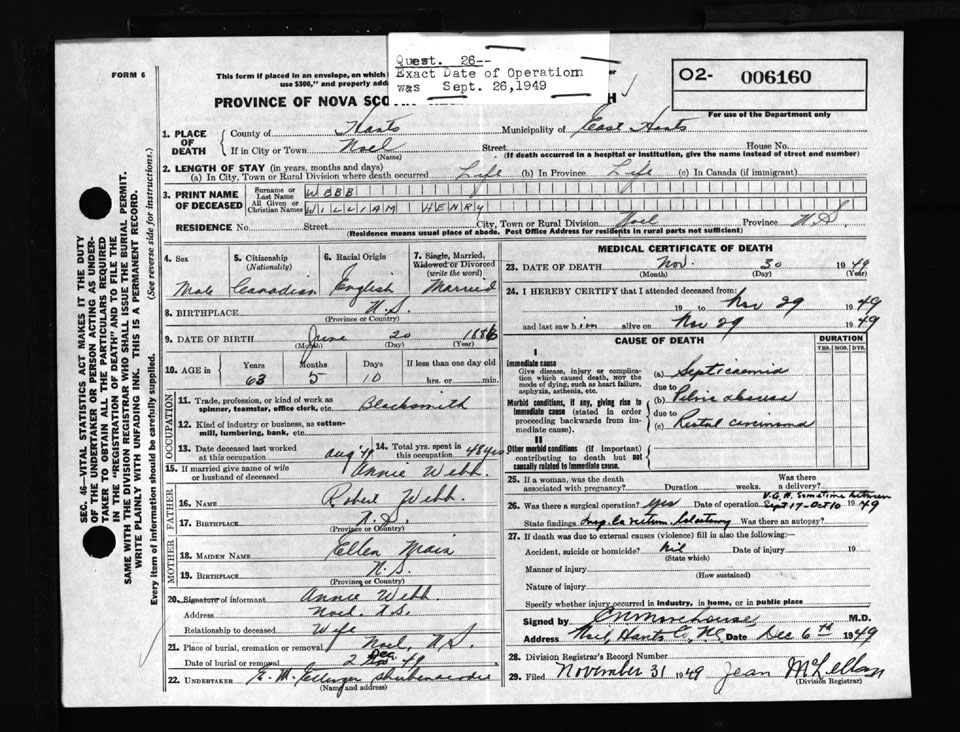 Quest. 26--
Exact Date of Operation
was Sept. 26,1949
FORM 6
This form if placed in an envelope, on which
"$300," and properly
O2- 006160
For use of the Department only
PROVINCE OF NOVA SCOTIA
1. PLACE OF DEATH
County of Hants Municipality of East Hants
If in City or Town Noel Street House No.
(Name) (If death occurred in a hospital or institution, give the name instead of street and number)
2. LENGTH OF STAY (in years, months and days)
(a) In City, Town or Rural Division where death occurred Life (b) In Province Life (c) In Canada (if immigrant)
3. PRINT NAME OF DECEASED
Surname or Last Name WEBB
All Given or Christian Names WILLIAM HENRY
RESIDENCE No. Street City, Town or Rural Division Noel Province N.S.
(Residence means usual place of abode. Post Office Address for residents in rural parts not sufficient)
4. Sex 5. Citizenship (Nationality) 6. Racial Origin 7. Single, Married, Widowed or Divorced (write the word)
Male Canadian English Married
8. BIRTHPLACE N.S.
(Province or Country)
9. DATE OF BIRTH June 20 1886
(Month) (Day) (Year)
10. AGE in Years Months Days If less than one day old
63 5 10 hrs. or min.
OCCUPATION
11. Trade, profession, or kind of work as spinner, teamster, office clerk, etc. Blacksmith
12. Kind of industry or business, as cotton-mill, lumbering, bank, etc.
13. Date deceased last worked at this occupation Aug 49 14. Total yrs. spent in this occupation 48 yrs
15. If married give name of wife or husband of deceased Annie Webb
FATHER
16. Name Robert Webb
17. Birthplace N.S.
(Province or Country)
MOTHER
18. Maiden Name Ellen
19. Birthplace N.S.
(Province or Country)
20. Signature of informant Annie Webb
Address Noel N.S.
Relationship to deceased Wife
21. Place of burial, cremation or removal Noel, N.S.
Date of burial or removal 2 Dec 49
22. UNDERTAKER E. M. Ettinger Shubenacadie
(Name and address)
MEDICAL CERTIFICATE OF DEATH
23. DATE OF DEATH Nov. 30 1949
(Month) (Day) (Year)
24. I HEREBY CERTIFY that I attended deceased from:
19 to Nov 29 1949
and last saw him alive on Nov 29 1949
CAUSE OF DEATH
DURATION
YRS. MOS. DYS.
I
Immediate cause
Give disease, injury or complication which caused death, not the mode of dying, such as heart failure, asphyxia, asthenia, etc.
(a) Septicaemia
due to
Morbid conditions, if any, giving rise to immediate cause (stated in order proceeding backwards from immediate cause).
(b) Pelvic abscess
due to
(c) Rectal carcinoma
II
Other morbid conditions (if important) contributing to death but not causally related to immediate cause.
25. If a woman, was the death associated with pregnancy? Duration weeks. Was there a delivery?
26. Was there a surgical operation? Yes Date of operation V.G.H. Sometime between Sept 17-Oct 10 1949
State findings Inop. Ca rectum, Colostomy Was there an autopsy?
27. If death was due to external causes (violence) fill in also the following:—
Accident, suicide or homicide? nil Date of injury 19
(State which)
Manner of injury
(How sustained)
Nature of injury
Specify whether injury occurred in industry, in home, or in public place
Signed by M.D.
Address Noel, Hants Co, NS Date Dec 6th 1949
28. Division Registrar's Record Number
29. Filed November 31 1949 Jean McLellan
(Division Registrar)
SEC. 46—VITAL STATISTICS ACT MAKES IT THE DUTY
OF THE UNDERTAKER OR PERSON ACTING AS UNDER-
TAKER TO OBTAIN ALL THE PARTICULARS REQUIRED
IN THE "REGISTRATION OF DEATH" AND TO FILE THE
SAME WITH THE DIVISION REGISTRAR WHO SHALL ISSUE THE BURIAL PERMIT.
WRITE PLAINLY WITH UNFADING INK. THIS IS A PERMANENT RECORD.
Every item of information should be carefully supplied. (See reverse side for instructions.)